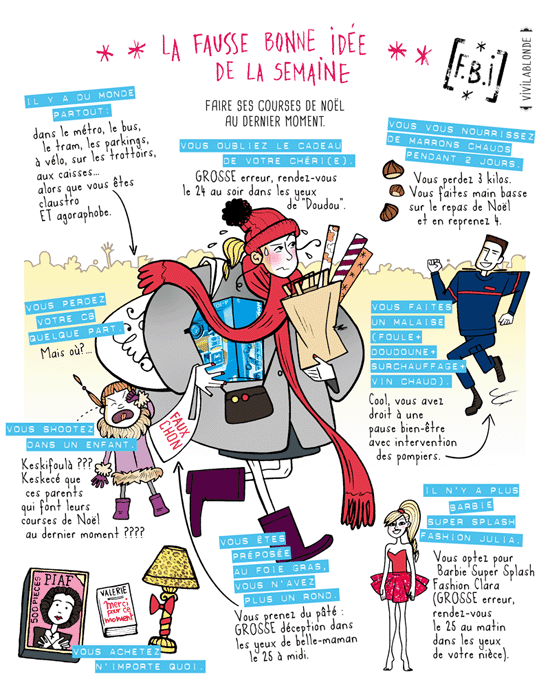 LA FAUSSE BONNE IDÉE
DE LA SEMAINE
[F.B.i]
VIVILABLONDE
FAIRE SES COURSES DE NOËL
AU DERNIER MOMENT.
IL Y A DU MONDE
PARTOUT:
dans le métro, le bus,
le tram, les parkings,
à vélo, sur les trottoirs,
aux caisses...
alors que vous êtes
claustro
ET agoraphobe.
VOUS OUBLIEZ LE CADEAU
DE VOTRE CHÉRI(E).
GROSSE erreur, rendez-vous
le 24 au soir dans les yeux
de "Doudou".
VOUS VOUS NOURRISSEZ
DE MARRONS CHAUDS
PENDANT 2 JOURS.
Vous perdez 3 kilos.
Vous faites main basse
sur le repas de Noël
et en reprenez 4.
VOUS PERDEZ
VOTRE CB
QUELQUE PART.
Mais où?...
VOUS FAITES
UN MALAISE
(FOULE+
DOUDOUNE+
SURCHAUFFAGE+
VIN CHAUD).
Cool, vous avez
droit à une
pause bien-être
avec intervention
des pompiers.
VOUS SHOOTEZ
DANS UN ENFANT.
Keskifoulà ???
Keskecé que
ces parents
qui font leurs
courses de Noël
au dernier moment ????
FAUX
CHON
VOUS ÊTES
PRÉPOSÉE
AU FOIE GRAS,
VOUS N'AVEZ
PLUS UN ROND.
Vous prenez du pâté :
GROSSE déception dans
les yeux de belle-maman
le 25 à midi.
IL N'Y A PLUS
BARBIE
SUPER SPLASH
FASHION JULIA.
Vous optez pour
Barbie Super Splash
Fashion Clara
(GROSSE erreur,
rendez-vous
le 25 au matin
dans les yeux
de votre nièce).
500 PIECES
PIAF
VALERIE
merci
pour ce
moment
VOUS ACHETEZ
N'IMPORTE QUOI.